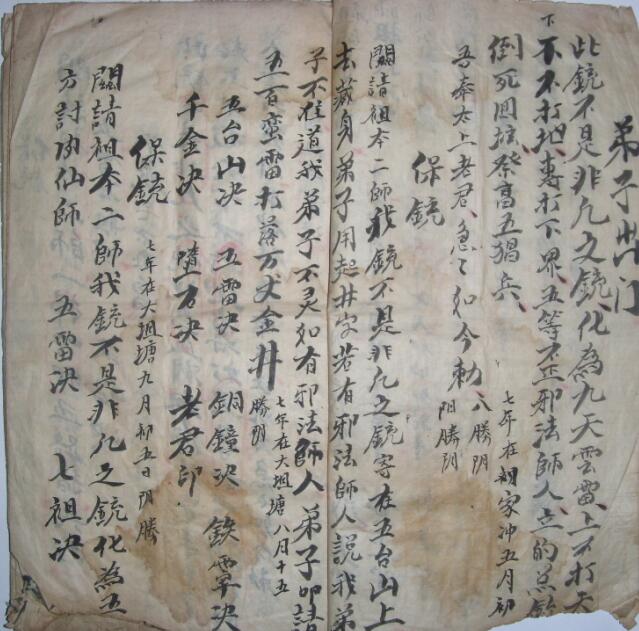 弟子
此銃不是非凡之銃化為九天雲雷上不打天
下不不打地專打下界五等不正邪法師人立的
倒死回壇祭高五猖兵
七年在胡家冲五月初
吾奉太上老君急々如今勅
八勝阴
阳勝阴
保銃
闗請祖本二師我銃不是非凡之銃寄在五台山上
去藏身弟子用起井字若有邪法師人說我弟
子不准道我弟子不灵如有邪法師人弟子叩請
五百蛮雷打落万丈金井
勝阴
七年在大坦塘八月十五
五台山决 五雷决 銅鐘决 鉄 决
千金决 万决 老君印
保銃
七年在大坦塘九月初五日阴勝
闗請祖本二師我銃不是非凡之銃化為五
方 仙師 五雷决 七祖决